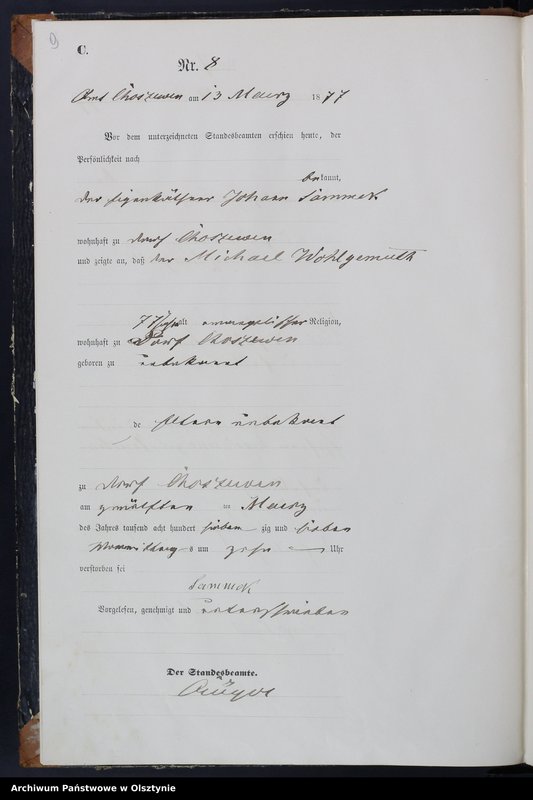 9
C.
Nr. 8
Amt Choszewen am 13 Maerz 1877
Vor dem unterzeichneten Standesbeamten erschien heute, der
Persönlichkeit nach
bekannt,
der Eigenkäthner Johann Sammek
wohnhaft zu Dorf Choszewen
und zeigte an, daß der Michael Wohlgemuth
77 Jahr alt evangelischer Religion,
wohnhaft zu Dorf Choszewen
geboren zu unbekannt
de Eltern unbekannt
zu Dorf Choszewen
am zwölften ten Maerz
des Jahres tausend acht hundert sieben zig und sieben
Vormittag s um zehn Uhr
verstorben sei
Sammek
Vorgelesen, genehmigt und unterschrieben
Der Standesbeamte.
Archiwum Państwowe w Olsztynie